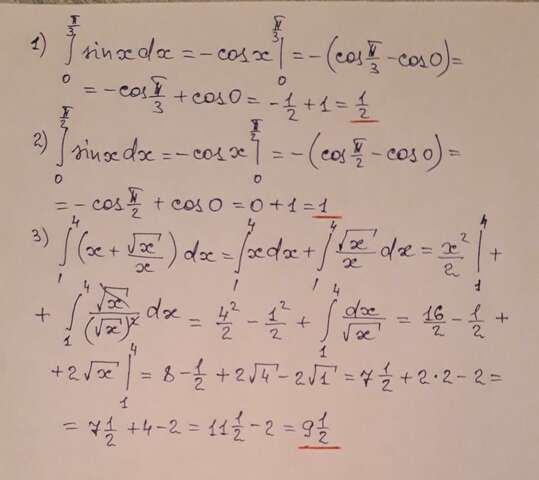 1) ∫₀^{π/3} sinx dx = -cosx |₀^{π/3} = -(cos π/3 - cos0) =
= -cos π/3 + cos0 = -1/2 + 1 = 1/2
2) ∫₀^{π/2} sinx dx = -cosx |₀^{π/2} = -(cos π/2 - cos0) =
= -cos π/2 + cos0 = 0 + 1 = 1
3) ∫₁⁴ (x + √x/x) dx = ∫₁⁴ x dx + ∫₁⁴ √x/x dx = x²/2 |₁⁴ +
+ ∫₁⁴ √x/(√x)² dx = 4²/2 - 1²/2 + ∫₁⁴ dx/√x = 16/2 - 1/2 +
+ 2√x |₁⁴ = 8 - 1/2 + 2√4 - 2√1 = 7 1/2 + 2·2 - 2 =
= 7 1/2 + 4 - 2 = 11 1/2 - 2 = 9 1/2